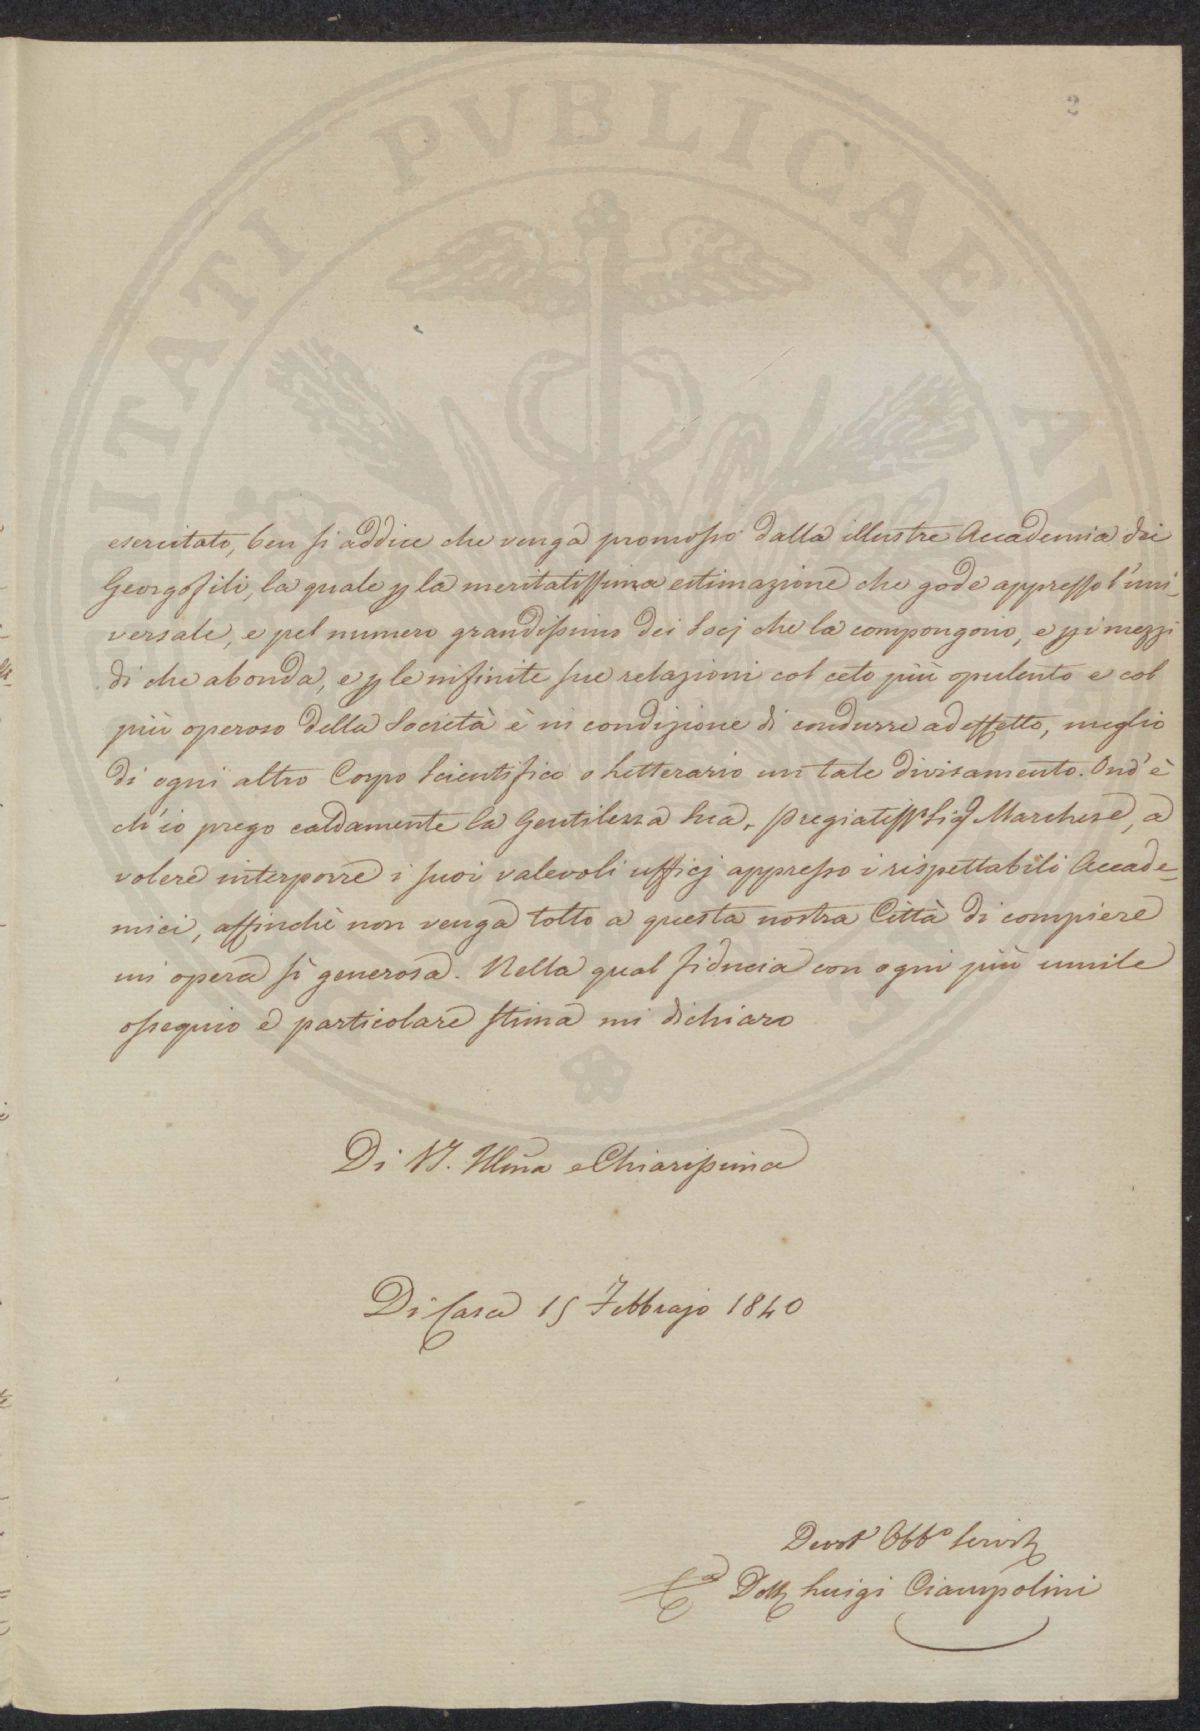 2
PVBLICAE
ITATI
esercitato, ben si addice che venga promosso dalla illustre Accademia dei
Georgofili, la quale p la meritatissima estimazione che gode appresso l'uni-
versale, e pel numero grandissimo dei Socj che la compongono, e p i mezzi
di che abonda, e p le infinite sue relazioni col ceto più opulento e col
più operoso della Società è in condizione di condurre ad effetto, meglio
di ogni altro Corpo Scientifico o Letterario un tale divisamento. Ond'è
ch'io prego caldamente la Gentilezza Sua, Pregiatiss. Sig. Marchese, a
volere interporre i suoi valevoli ufficj appresso i rispettabili Accade-
mici, affinchè non venga tolto a questa nostra Città di compiere
un opera sì generosa. Nella qual fiducia con ogni più umile
ossequio e particolare stima mi dichiaro
Di VS. Illma e Chiarissima
Di Casa 15 Febbrajo 1840
Devot. Obb.o Servit.
Dott. Luigi Ciampolini